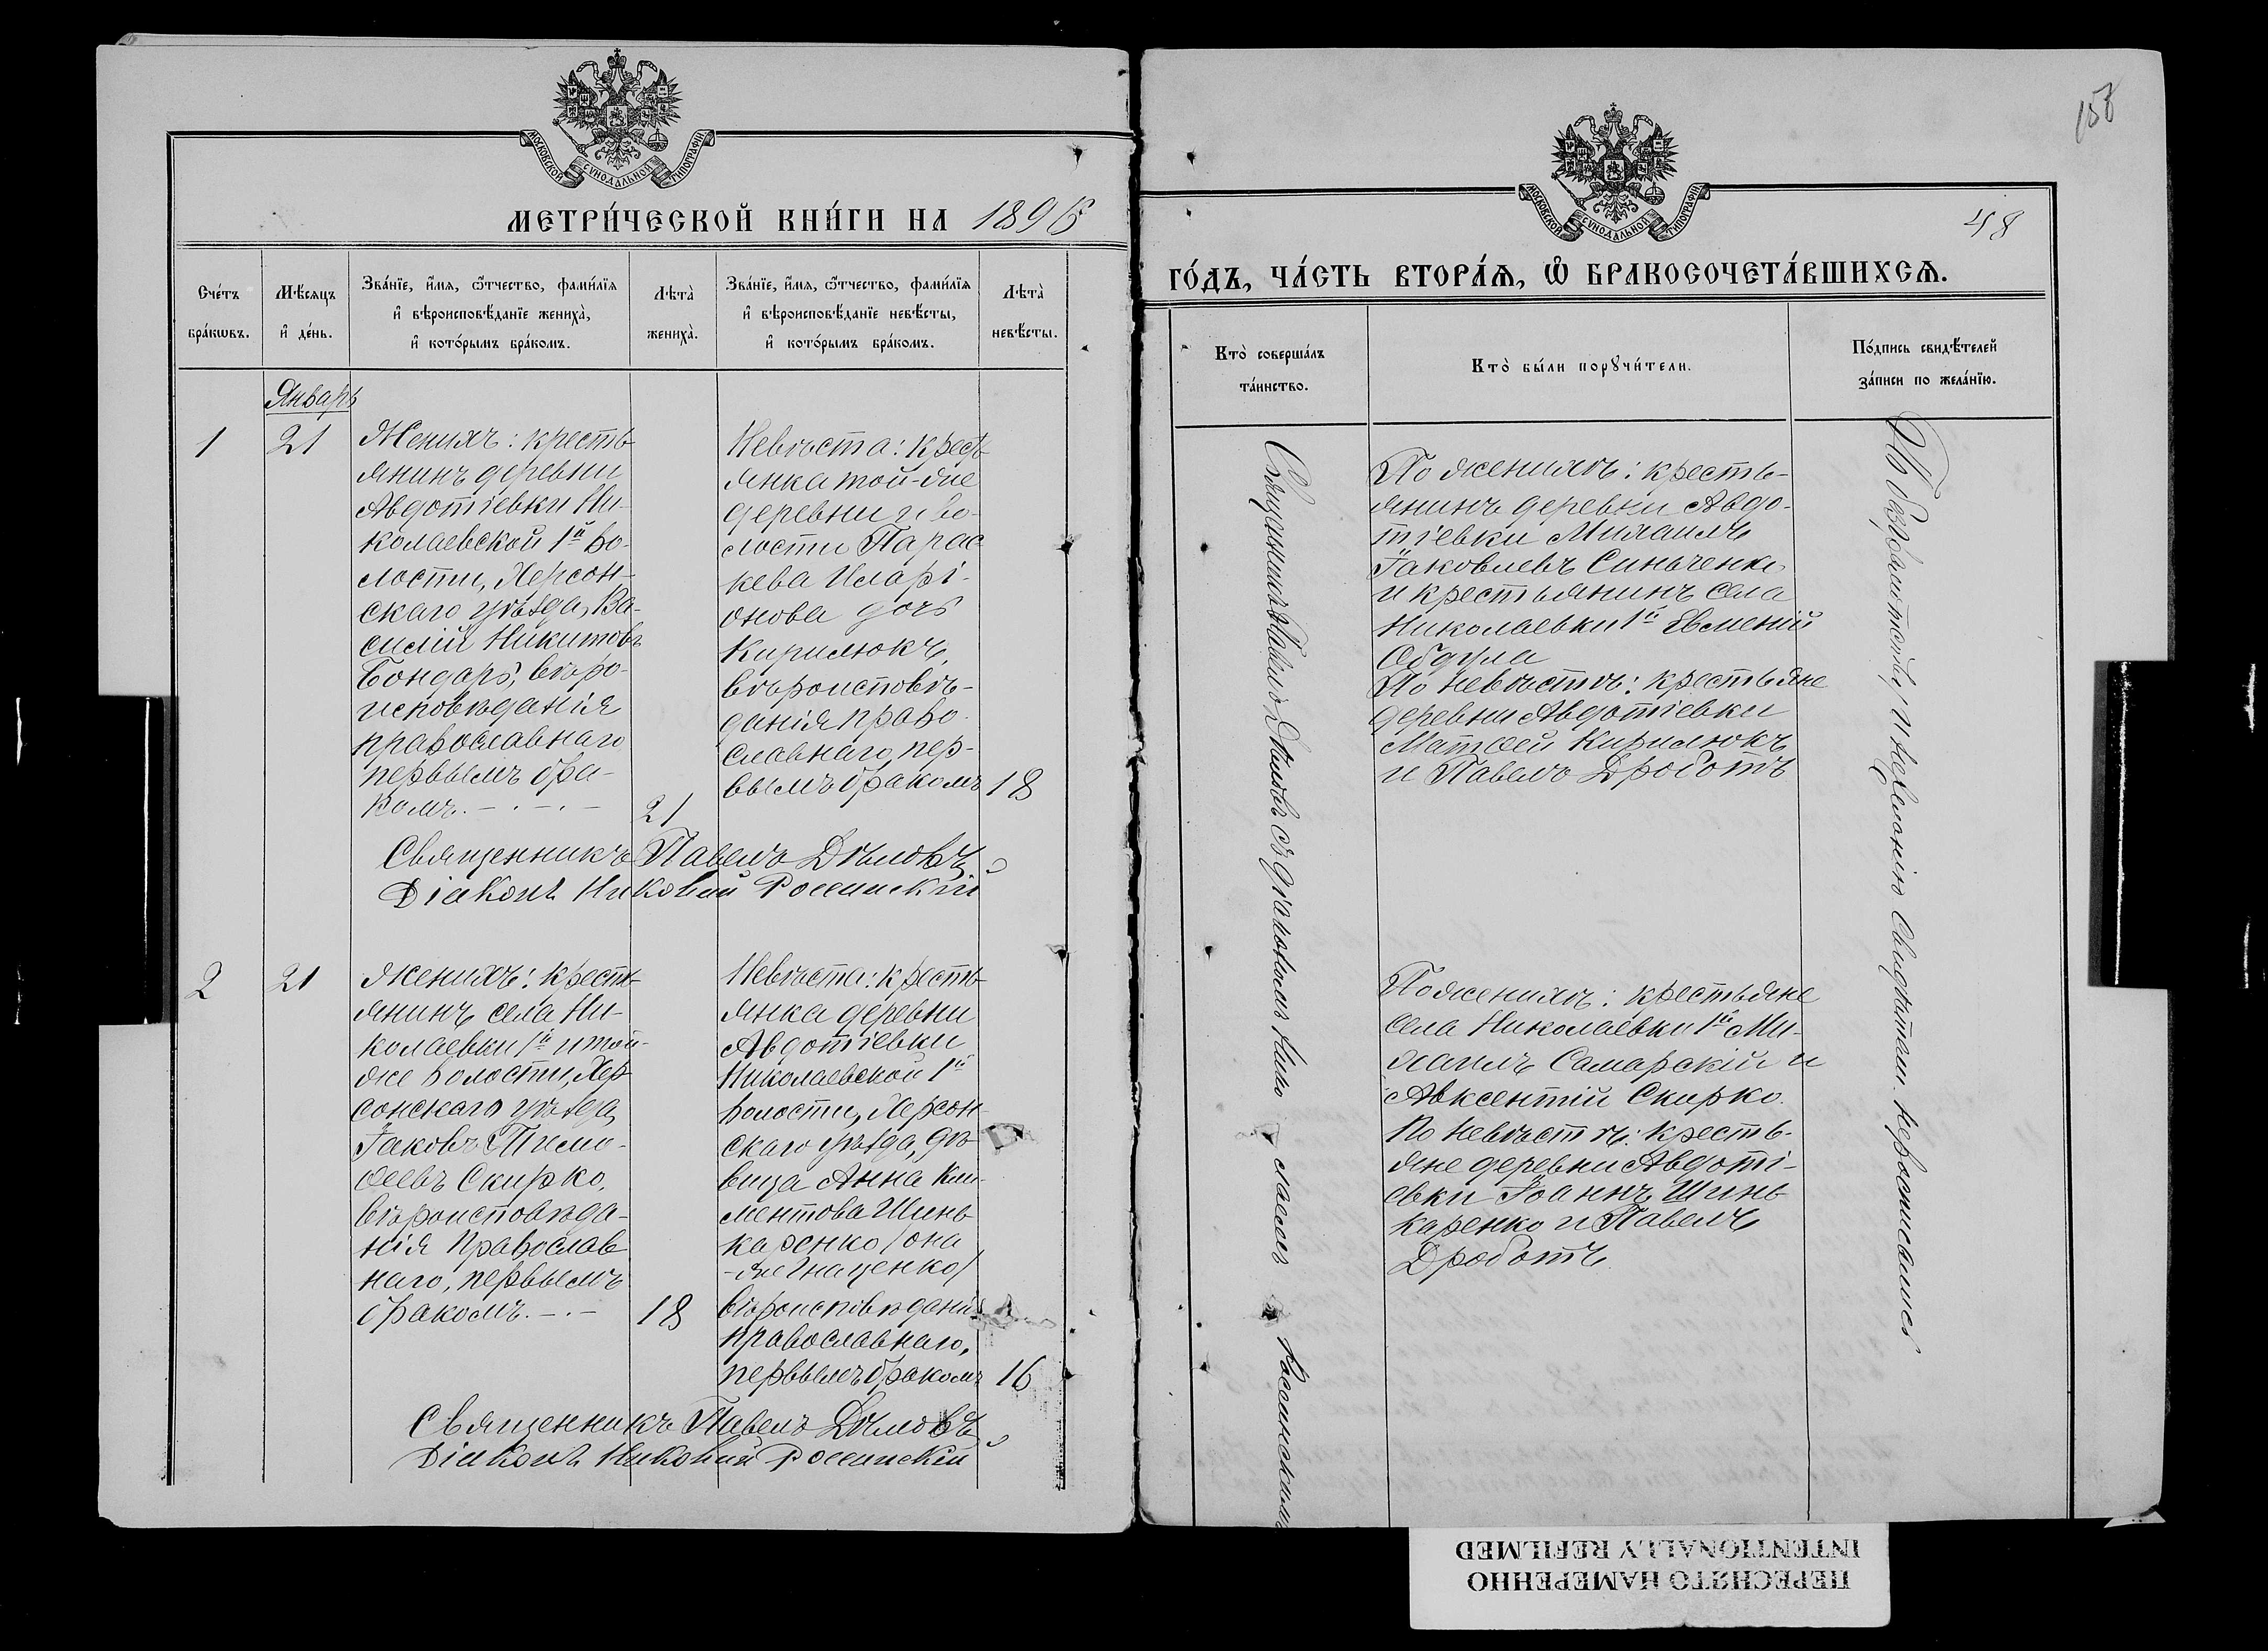 МОСКОВСКОЙ СѴНОДАЛЬНОЙ ТИПОГРАФІИ
МЕТРИ́ЧЕСКОЙ КНИ́ГИ НА 1896
Сче́тъ
бра́кѡвъ.
Мѣ́сяцъ
и҆ де́нь.
Зва́нїе, и҆́мѧ, ѻ҆́тчество, фами́лїѧ
и҆ вѣроисповѣ́данїе жениха̀,
и҆ кото́рымъ бра́комъ.
Лѣта̀
жениха̀.
Зва́нїе, и҆́мѧ, ѻ҆́тчество, фами́лїѧ
и҆ вѣроисповѣ́данїе невѣ́сты,
и҆ кото́рымъ бра́комъ.
Лѣта̀
невѣ́сты.
Январь
1
21
Женихъ: кресть-
янинъ деревни
Авдотіевки Ни-
колаевской 1й во-
лости, Херсон-
скаго уѣзда, Ва-
силій Никитовъ
Бондарь, вѣро-
исповѣданія
православнаго
первымъ бра-
комъ. — . — . —
21
Невѣста: кресть-
янка той-же
деревни и во-
лости Парас-
кева Иларі-
онова дочь
Кирилюкъ,
вѣроисповѣ-
данія право-
славнаго, пер-
вымъ бракомъ
18
Священникъ Павелъ Дѣловъ
Діаконъ Никовій Россинскій
2
21
Женихъ: кресть-
янинъ села Ни-
колаевки 1й и той-
же волости, Хер-
сонскаго уѣзда,
Іаковъ Тимо-
ѳеевъ Скирко,
вѣроисповѣда-
нія Православ-
наго, первымъ
бракомъ. — . —
18
Невѣста: кресть-
янка деревни
Авдотіевки
Николаевской 1й
волости, Херсон-
скаго уѣзда, дѣ-
вица Анна Кли-
ментова Шинь-
каренко /она
-же Гнаценко/
вѣроисповѣданія
православнаго,
первымъ бракомъ
16
Священникъ Павелъ Дѣловъ
Діаконъ Никовій Россинскій
158
МОСКОВСКОЙ СѴНОДАЛЬНОЙ ТИПОГРАФІИ
48
ГО́ДЪ, ЧА́СТЬ ВТОРА́Ѧ, Ѡ҆ БРАКОСОЧЕТА́ВШИХСѦ.
Кто̀ соверша́лъ
та́инство.
Кто̀ бы́ли порꙋчи́тели.
По́дпись свидѣ́телей
за́писи по жела́нїю.
Священникъ Павелъ Дѣловъ съ діакономъ Нико
Россинскимъ
По женихѣ: кресть-
янинъ деревни Авдо-
тіевки Михаилъ
Іаковлевъ Синченко
и крестьянинъ села
Николаевки 1й Евменій
Обдула
По невѣстѣ: крестьяне
деревни Авдотіевки
Матѳей Кирилюкъ
и Павелъ Дроботъ
По женихѣ: крестьяне
села Николаевки 1й Ми-
хаилъ Самарскій и
Авксентій Скирко.
По невѣстѣ: кресть-
яне деревни Авдоті-
евки Іоаннъ Шинь-
каренко и Павелъ
Дроботъ
По безграмотству и нежеланію свидѣтели неросписались
ПЕРЕСНЯТО НАМЕРЕННО
INTENTIONALLY REFILMED